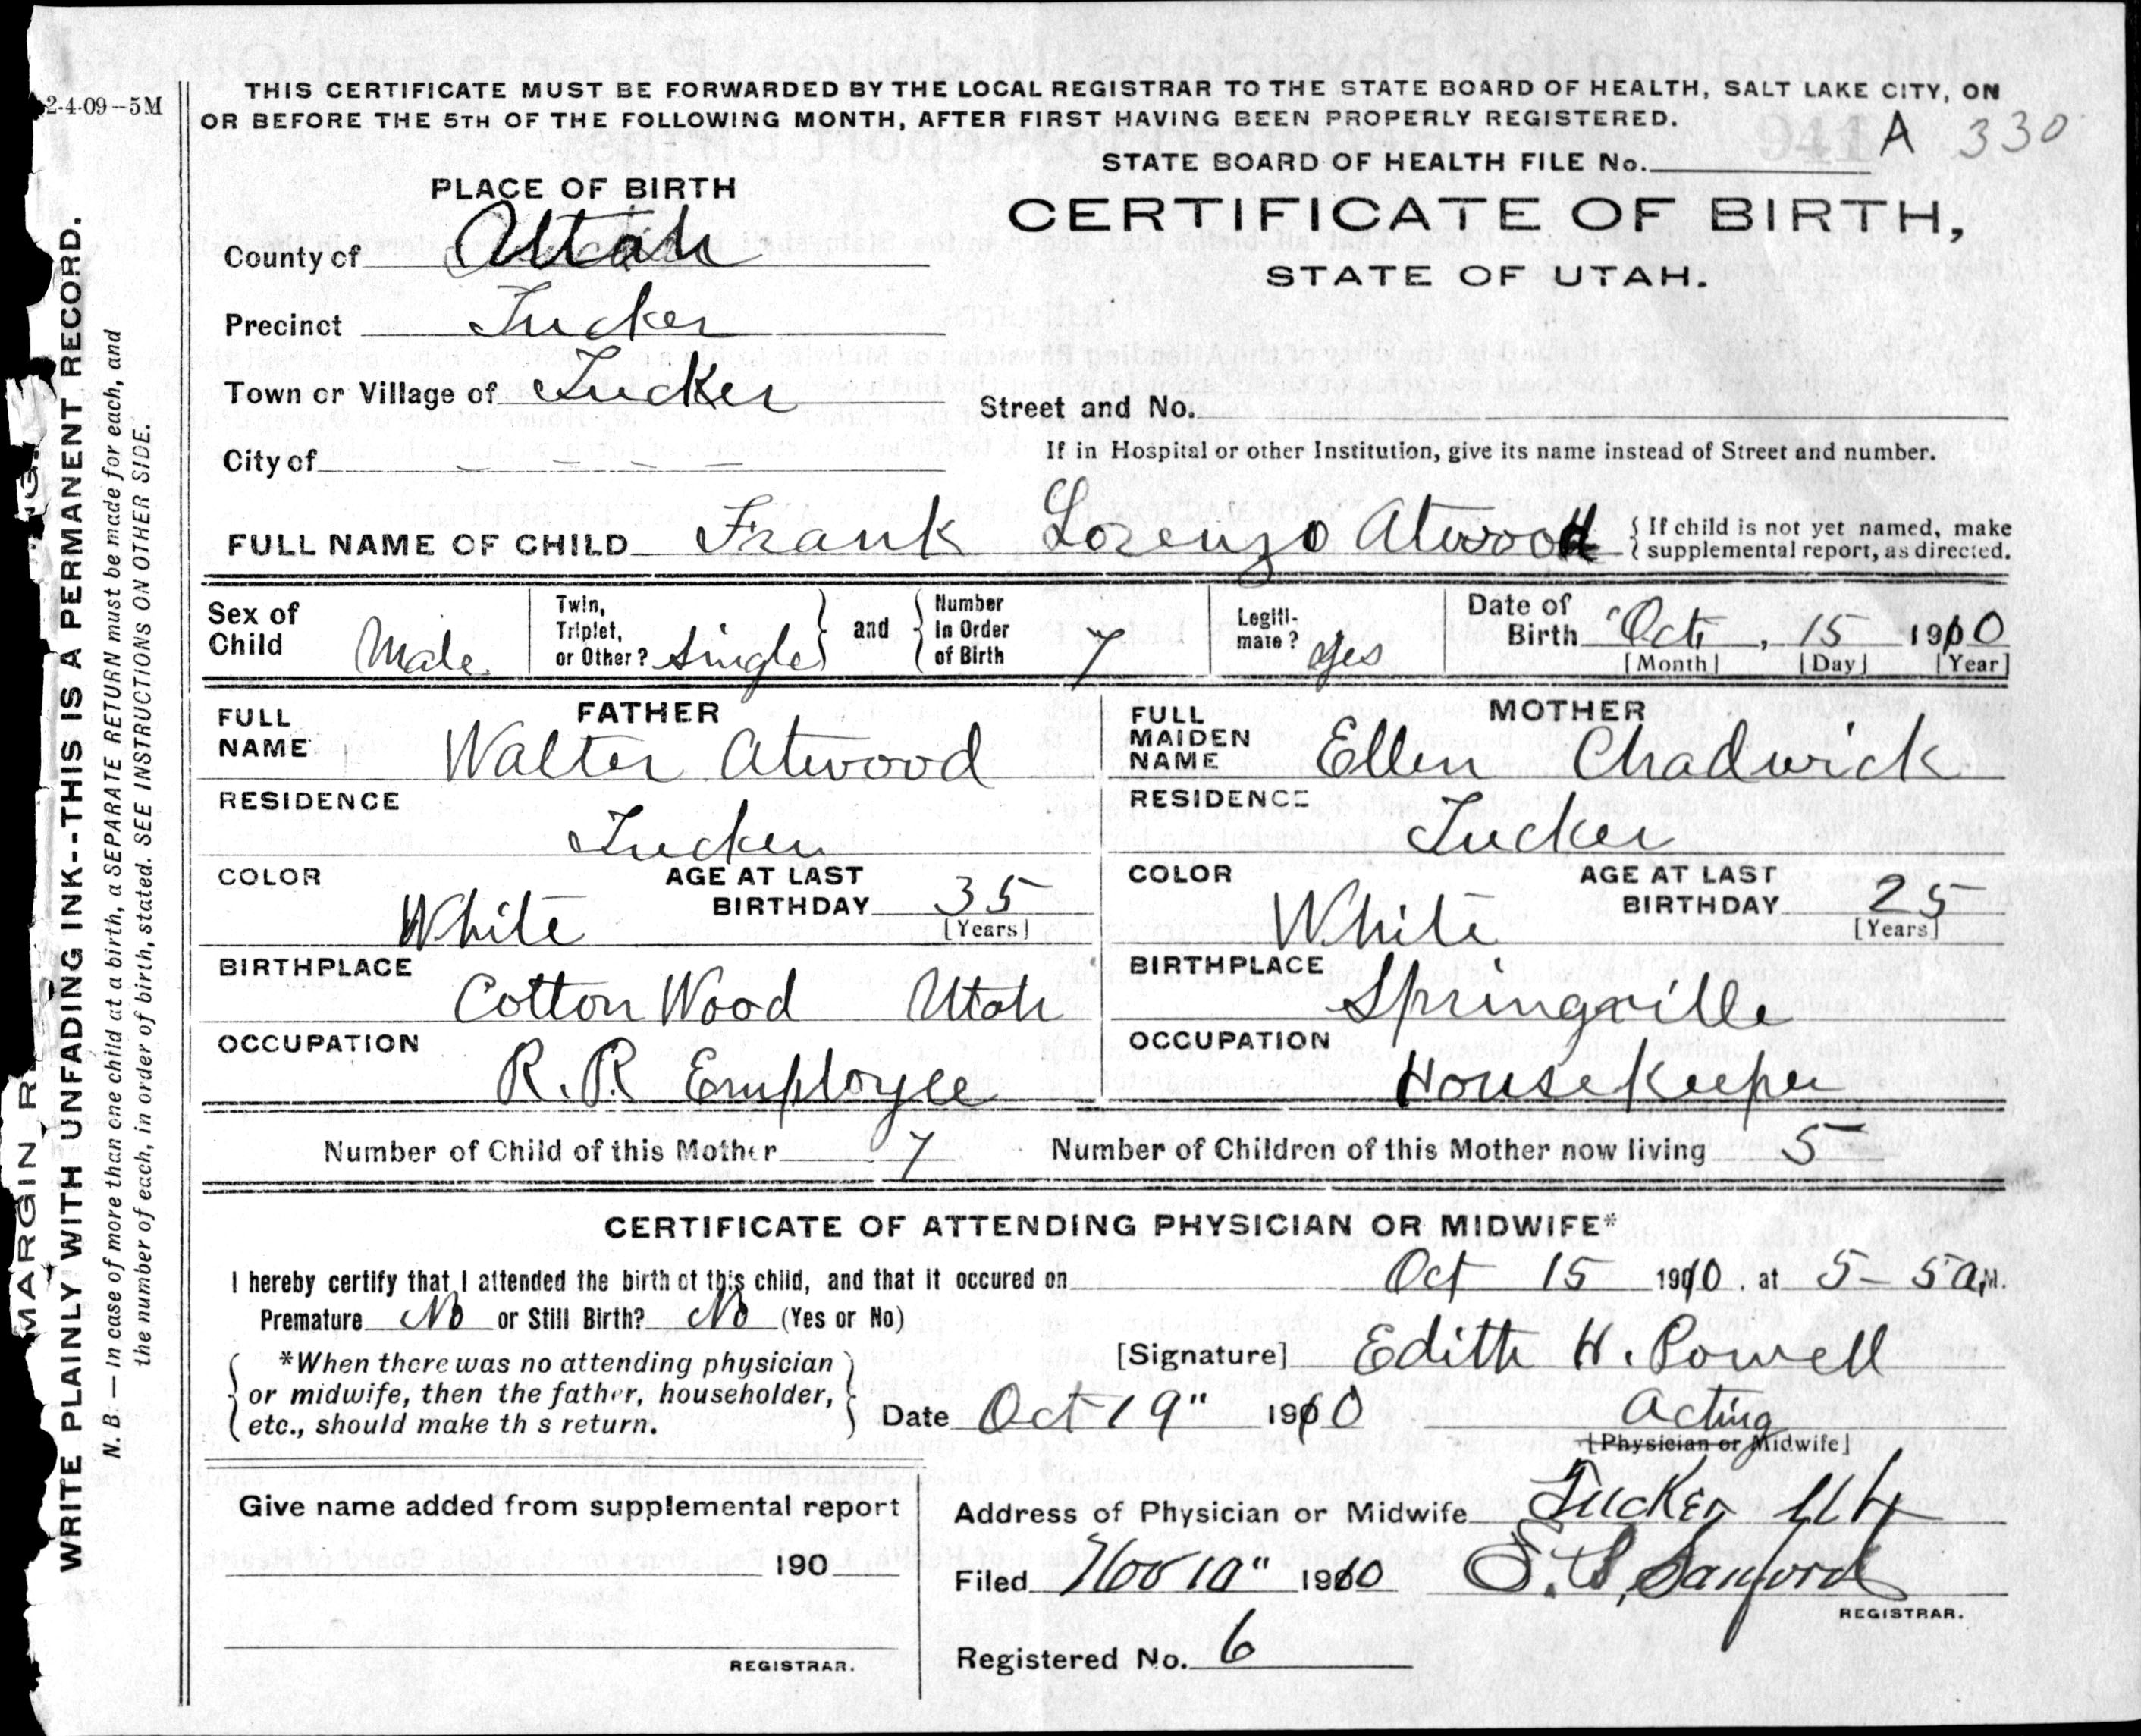 2-4-09-5M
THIS CERTIFICATE MUST BE FORWARDED BY THE LOCAL REGISTRAR TO THE STATE BOARD OF HEALTH, SALT LAKE CITY, ON
OR BEFORE THE 5TH OF THE FOLLOWING MONTH, AFTER FIRST HAVING BEEN PROPERLY REGISTERED.
STATE BOARD OF HEALTH FILE No. A 330
PLACE OF BIRTH
CERTIFICATE OF BIRTH,
STATE OF UTAH.
County of Utah
Precinct Tucker
Town or Village of Tucker
Street and No.
City of - - - -
If in Hospital or other Institution, give its name instead of Street and number.
FULL NAME OF CHILD Frank Lorenzo Atwood { If child is not yet named, make
supplemental report, as directed.
Sex of Child Male
Twin, Triplet, or Other? Single } and { Number in Order of Birth 7
Legitimate? Yes
Date of Birth Oct, 15 1910
[Month] [Day] [Year]
FATHER
FULL NAME Walter Atwood
RESIDENCE
Tucker
COLOR White AGE AT LAST BIRTHDAY 35
[Years]
BIRTHPLACE
Cotton Wood Utah
OCCUPATION
R.R Employee
MOTHER
FULL MAIDEN NAME Ellen Chadwick
RESIDENCE
Tucker
COLOR White AGE AT LAST BIRTHDAY 25
[Years]
BIRTHPLACE
Springville
OCCUPATION
Housekeeper
Number of Child of this Mother 7 Number of Children of this Mother now living 5
CERTIFICATE OF ATTENDING PHYSICIAN OR MIDWIFE*
I hereby certify that I attended the birth of this child, and that it occured on Oct 15 1910. at 5-5 a.M.
Premature No or Still Birth? No (Yes or No)
*When there was no attending physician
or midwife, then the father, householder,
etc., should make th s return.
[Signature] Edith H. Powell
Date Oct 19" 1910 Acting
[Physician or Midwife]
Give name added from supplemental report
190
REGISTRAR.
Address of Physician or Midwife Tucker Ut
Filed Nov 10" 1910 Sanford
REGISTRAR.
Registered No. 6
MARGIN RE
WRITE PLAINLY WITH UNFADING INK--THIS IS A PERMANENT RECORD.
N. B. — In case of more than one child at a birth, a SEPARATE RETURN must be made for each, and
the number of each, in order of birth, stated. SEE INSTRUCTIONS ON OTHER SIDE.